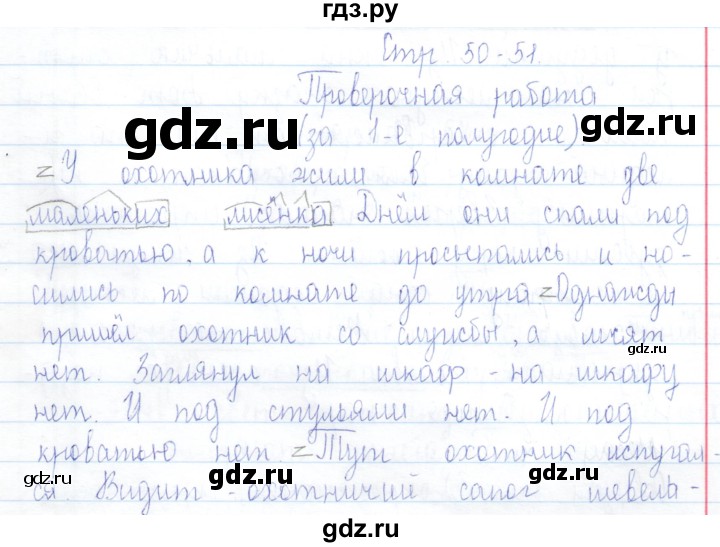 гдз.ру
Стр. 50-51.
Проверочная работа
gdz.ru gdz.ru
(за 1-е полугодие)
У охотника жили в комнате две
маленьких лисёнка Днём они спали под
кроватью, а к ночи просыпались и но-
сились по комнате до утра Однажды
пришёл охотник со службы, а лисят
gdz.ru
нет. Заглянул на шкаф - на шкафу
нет. И под стульями нет. И под
кроватью нет Тут охотник испугал-
gdz.ru gdz.ru
ся. Видит - охотничий сапог шевель-
gdz.ru